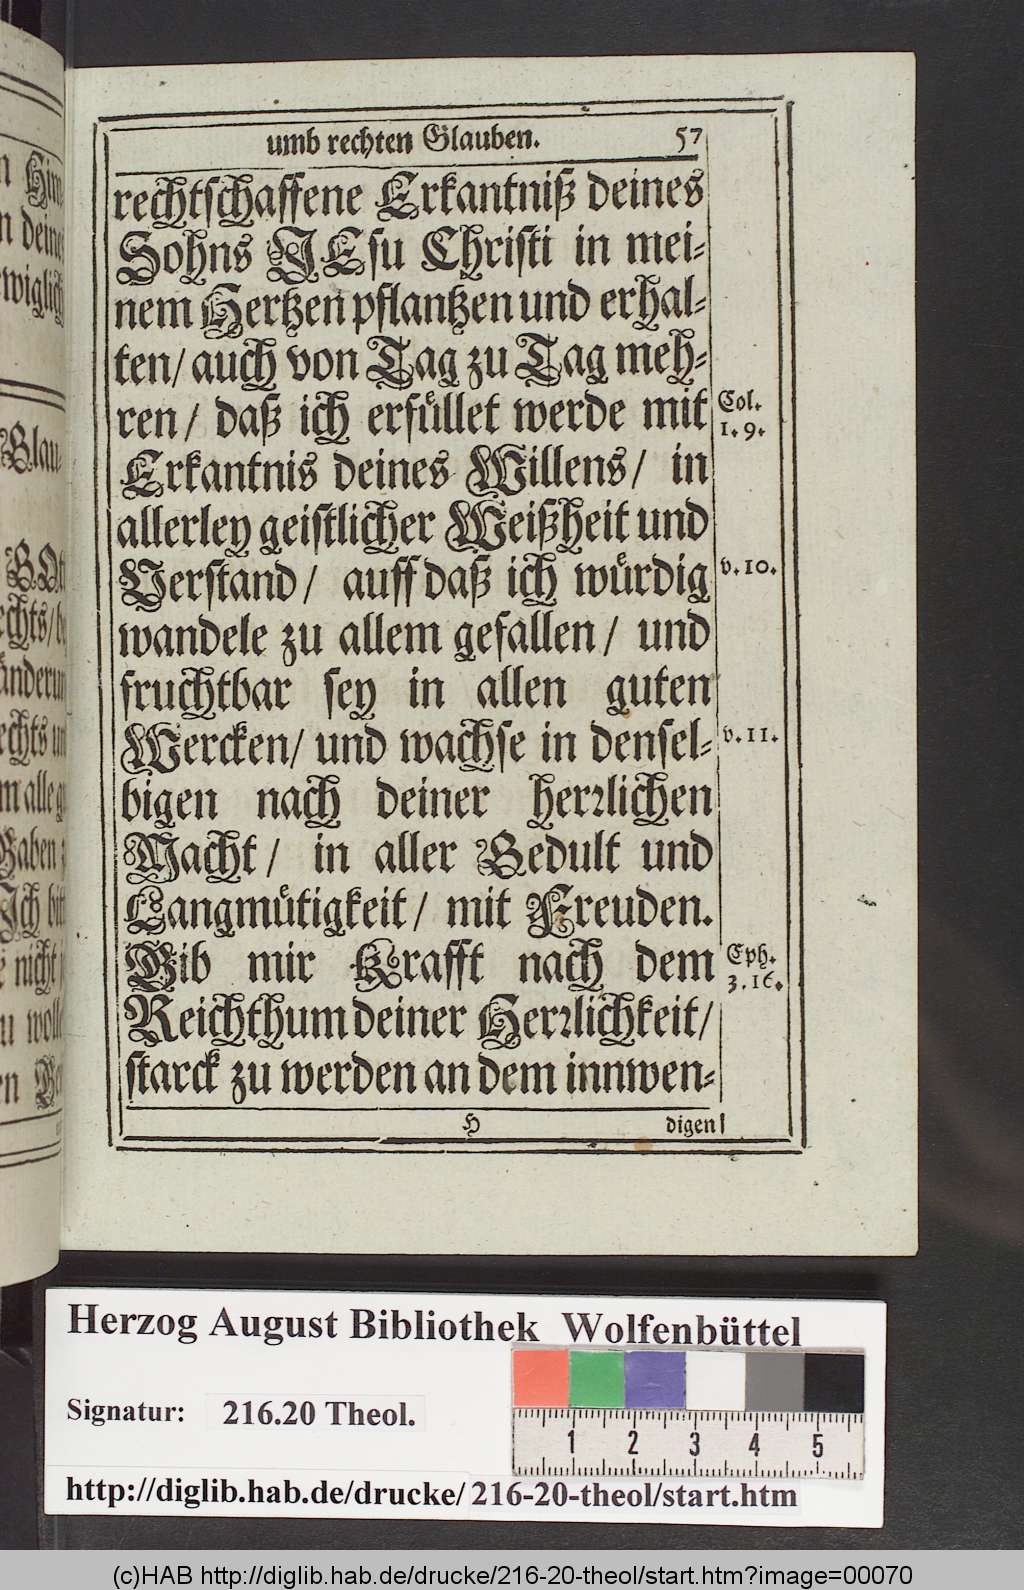 umb rechten Glauben. 57
rechtschaffene Erkantniß deines
Sohns JEsu Christi in mei-
nem Hertzen pflantzen und erhal-
ten/ auch von Tag zu Tag meh-
ren/ daß ich erfüllet werde mit
Col.
1. 9.
Erkantnis deines Willens/ in
allerley geistlicher Weißheit und
Verstand/ auff daß ich würdig
v. 10.
wandele zu allem gefallen/ und
fruchtbar sey in allen guten
Wercken/ und wachse in densel-
v. 11.
bigen nach deiner herꝛlichen
Macht/ in aller Gedult und
Langmütigkeit/ mit Freuden.
Gib mir Krafft nach dem
Eph.
3. 16.
Reichthum deiner Herꝛlichkeit/
starck zu werden an dem innwen-
H digen
Herzog August Bibliothek Wolfenbüttel
Signatur: 216.20 Theol.
1 2 3 4 5
http://diglib.hab.de/drucke/216-20-theol/start.htm
(c)HAB http://diglib.hab.de/drucke/216-20-theol/start.htm?image=00070